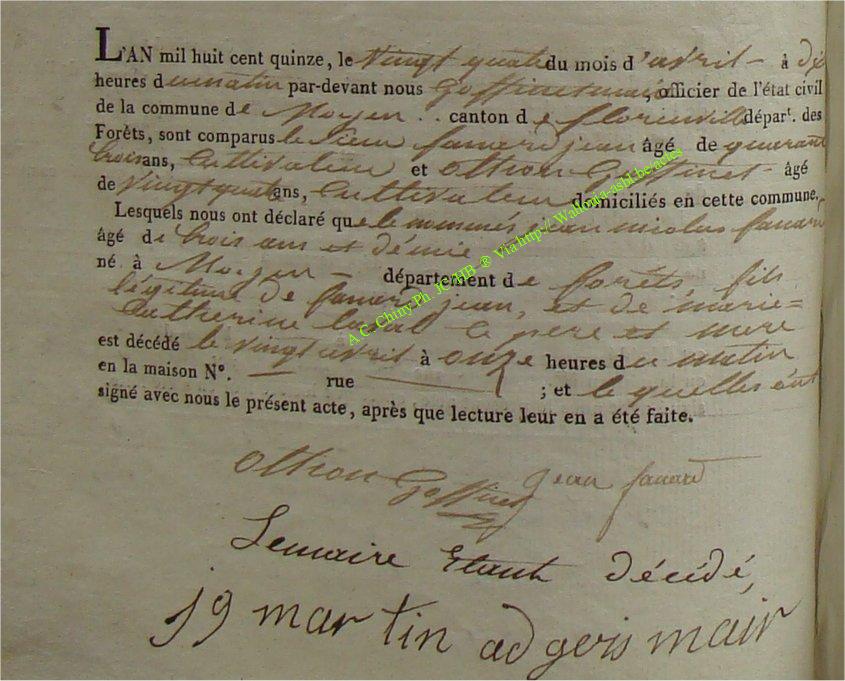 L'AN mil huit cent quinze, le vingt quatre du mois d'avril à dix
heures du matin par-devant nous Goffinet maire, officier de l'état civil
de la commune de Moyen canton de florenville départ. des
Forêts, sont comparus le sieur fanard jean âgé de quarant
trois ans, Cultivateur et othon Goffinet âgé
de vingt quatre ans, Cultivateur domiciliés en cette commune,
Lesquels nous ont déclaré que le nommé jean nicolas fanard
âgé de trois ans et démie
né à Moyen département de forêts, fils
légitime de fanard jean, et de marie=
Catherine père et mere
est décédé le vingt avril à onze heures du matin
en la maison N°. rue ; et le quelles ont
signé avec nous le présent acte, après que lecture leur en a été faite.
A.C. Chiny Ph. JC.HB ® Via http:// Wallonia-asbl.be/actes
othon Goffinet jean fanard
Lemaire Etant décédé,
19 martin adgois mair